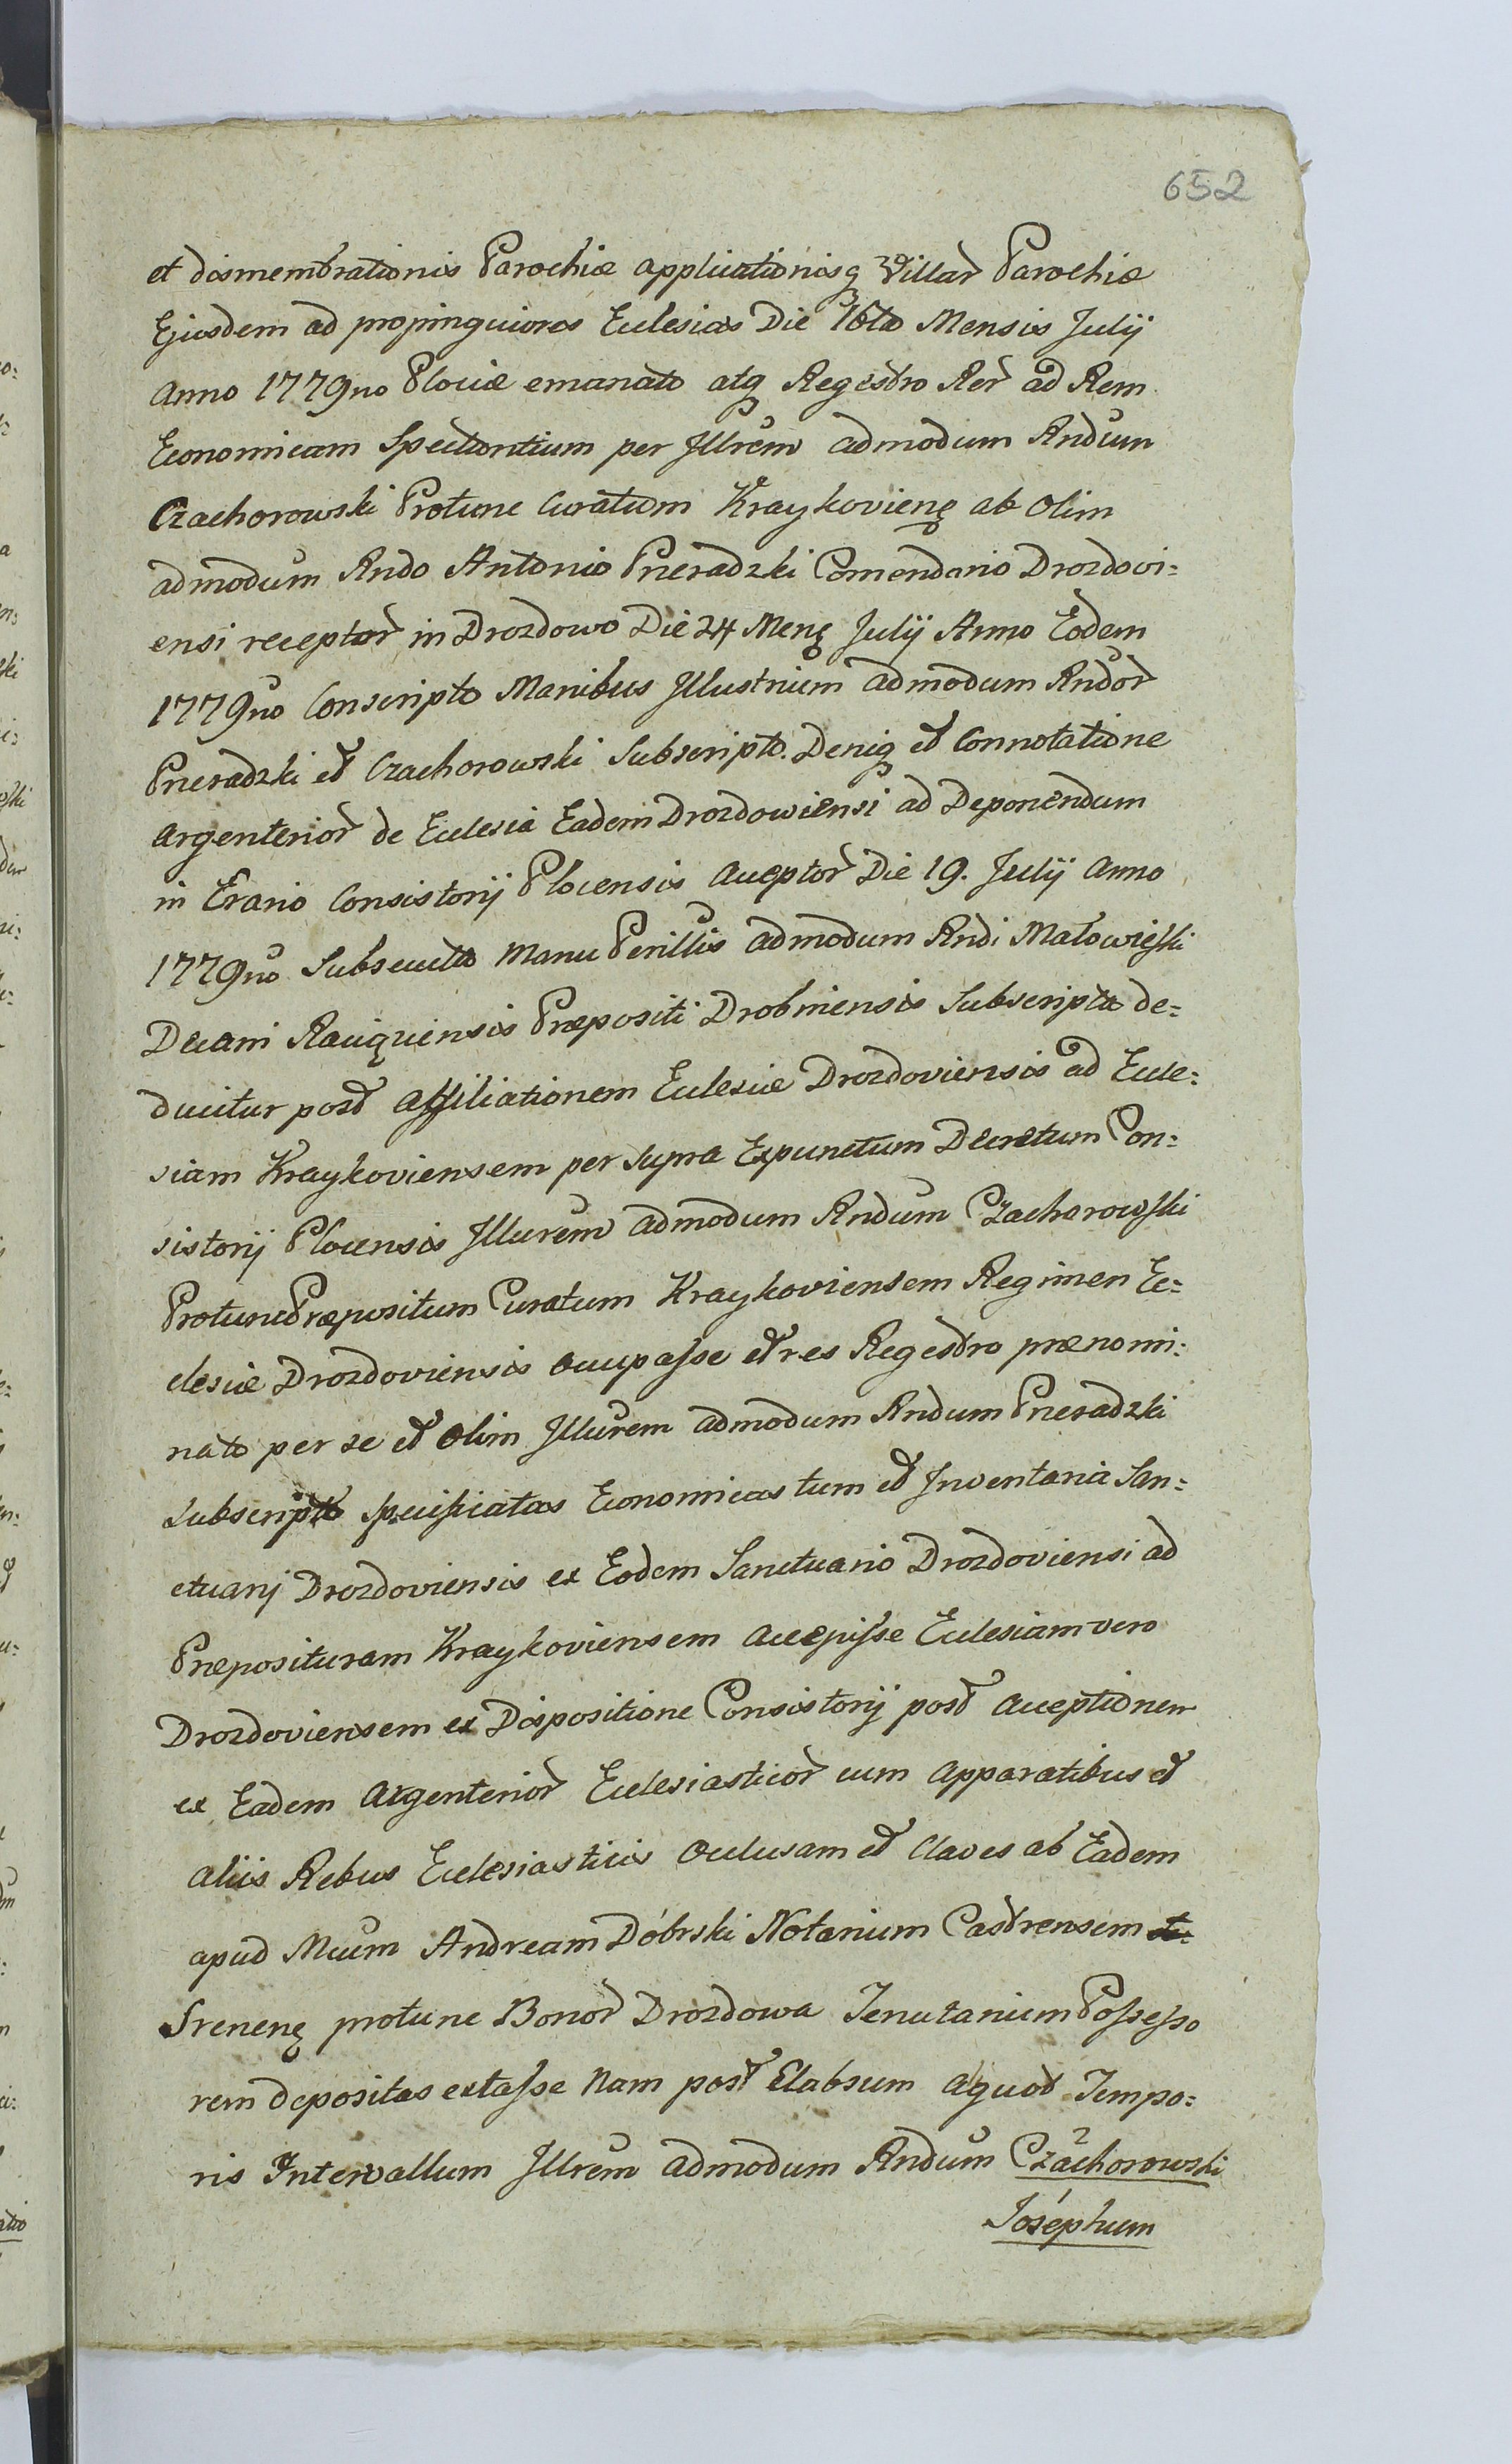 652
et dismembrationis Parochiæ applicationisq Villar Parochiæ
Ejusdem ad propinquiores Eclesias Die 16ta Mensis Julij
Anno 1779no Plociæ emanato atq Regestro Rer ad Rem
Economicam Spectantium per Illrem admodum Rndum
Czachorowski Protunc Curatum Kraykovienę ab olim
admodum Rndo Antonio Pneradzki Comendario Drozdovi=
ensi receptor in Drozdowo Die 24 Menę Julij Anno Eodem
1779no Conscripto Manibus Illustrium admodum Rndor
Pneradzki et Czachorowski Subscripto. Deniq et Connotatione
Argenterior de Eclesia Eadem Drozdowiensi ad Deponendum
in Erario Consistorij Plocensis acceptor Die 19. Julij Anno
1779no Subsecuta Manu Perillis admodum Rndi Małowieski
Decani Raciązensis Præpositi Drobinensis Subscripta de=
ducitur post affiliationem Eclesiæ Drozdoviensis ad Ecle=
siam Kraykoviensem per supra Expunctum Decretum Con=
sistorij Plocensis Illurem admodum Rndum Czachorowski
Protunc Præpositum Curatum Kraykoviensem Regimen Ec=
clesiæ Drozdoviensis occupasse et res Regestro prænomi=
nato per se et olim Illurem admodum Rndum Pneradzki
subscripto specificatas Economicas tum et Inventaria San=
ctuarj Drozdoviensis ex Eodem Sanctuario Drozdoviensi ad
Præposituram Kraykoviensem accepisse Eclesiam vero
Drozdoviensem ex Dispositione Consistorij post acceptionem
ex Eadem Argenterior Eclesiasticor cum Apparatibus et
aliis Rebus Eclesiasticis oclusam et Claves ab Eadem
apud Mcum Andream Dóbrski Notarium Castrensem
Srenenę protunc Bonor Drozdowa Tenutarium Possesso
rem depositas extasse Nam post Elabsum aquod Tempo=
ris Intervallum Illrem admodum Rndum Czachorowski
Josephum